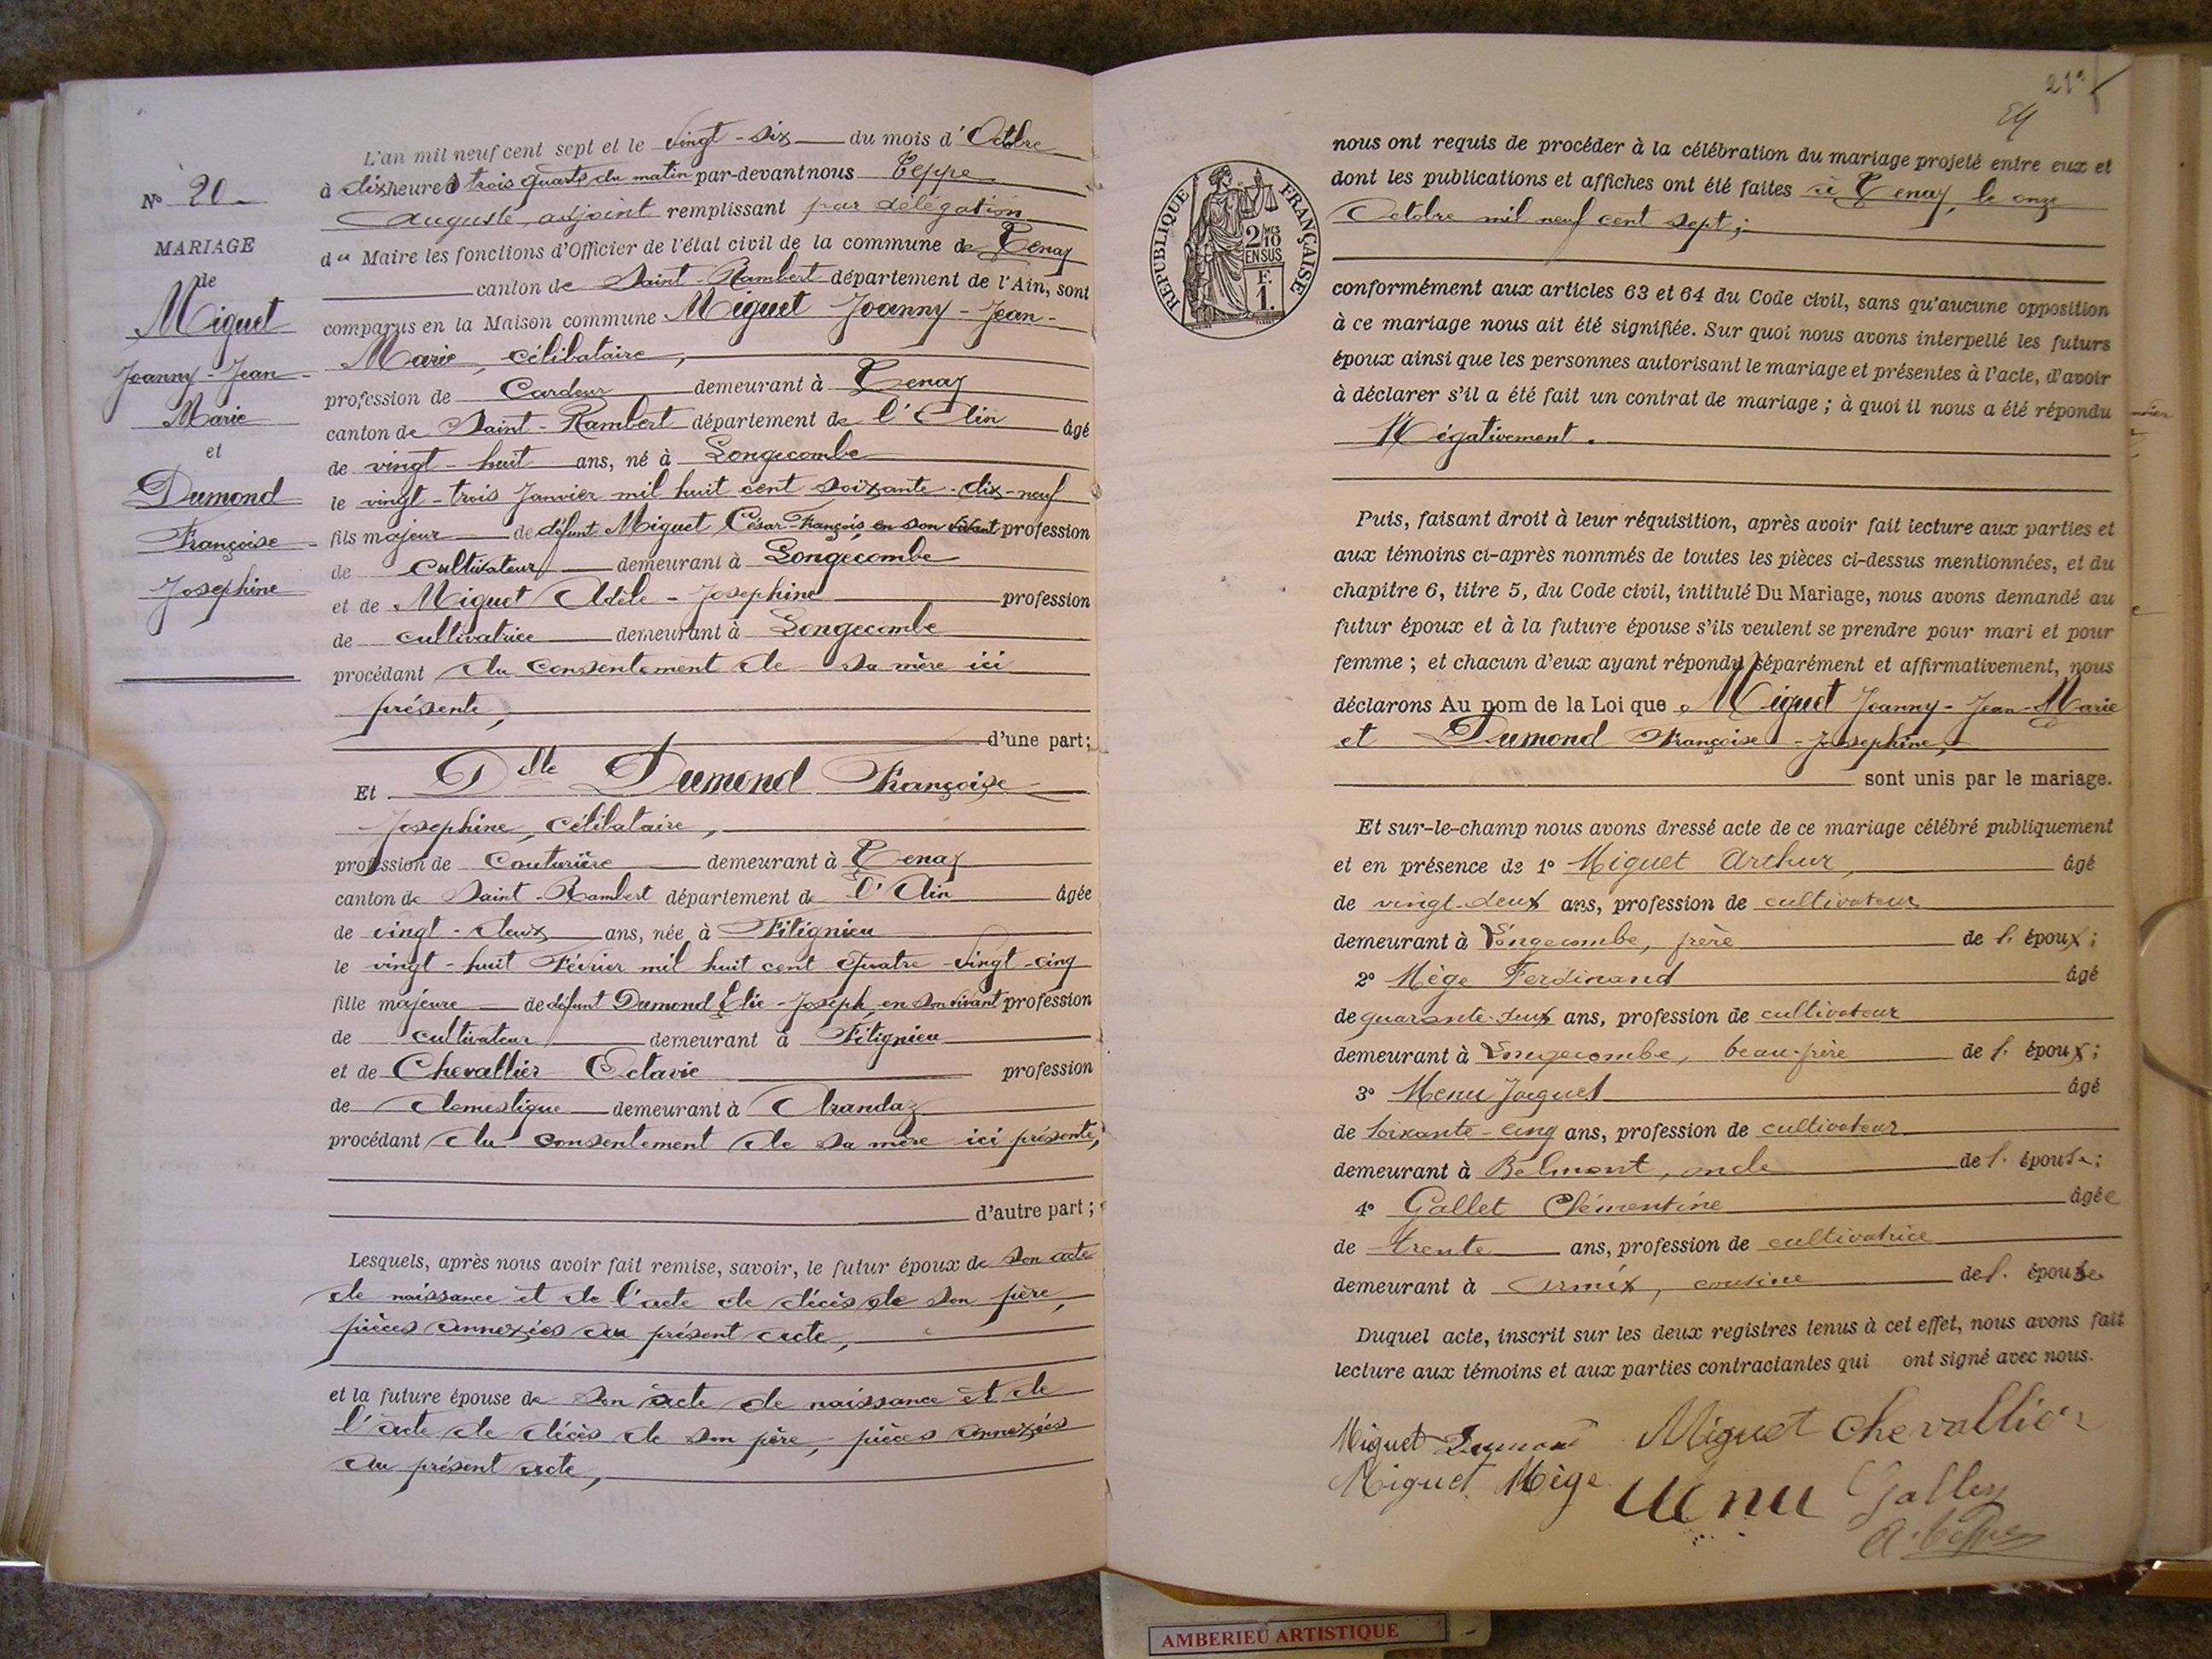 N° 20
MARIAGE
de
Miguet
Joanny-Jean-
Marie
et
Dumond
Françoise-
Josephine
L'an mil neuf cent sept et le vingt-six du mois d'Octobre
à dix heures trois quarts du matin par-devant nous Teppe
Auguste, adjoint remplissant par délégation
du Maire les fonctions d'Officier de l'état civil de la commune de Tenay
canton de Saint-Rambert département de l'Ain, sont
comparus en la Maison commune Miguet Joanny-Jean-
Marie, célibataire,
profession de Cardeur demeurant à Tenay
canton de Saint-Rambert département de l'Ain âgé
de vingt-huit ans, né à Longecombe
le vingt-trois Janvier mil huit cent soixante-dix-neuf
fils majeur de défunt Miguet César-François, en son vivant profession
de cultivateur demeurant à Longecombe
et de Miguet Adèle-Josephine profession
de cultivatrice demeurant à Longecombe
procédant du consentement de sa mère ici
présente,
d'une part;
Et Delle Dumond Françoise-
Josephine, célibataire,
profession de Couturière demeurant à Tenay
canton de Saint-Rambert département de l'Ain âgée
de vingt-deux ans, née à Fitignieu
le vingt-huit Février mil huit cent quatre-vingt-cinq
fille majeure de défunt Dumond Elie-Joseph, en son vivant profession
de cultivateur demeurant à Fitignieu
et de Chevallier Octavie profession
de domestique demeurant à Arandaz
procédant du consentement de sa mère ici présente,
d'autre part;
Lesquels, après nous avoir fait remise, savoir, le futur époux de son acte
de naissance et de l'acte de décès de son père,
pièces annexées au présent acte,
et la future épouse de son acte de naissance et de
l'acte de décès de son père, pièces annexées
au présent acte,
21e
RÉPUBLIQUE FRANÇAISE
2/10 MES
EN SUS
F.
1.
nous ont requis de procéder à la célébration du mariage projeté entre eux et
dont les publications et affiches ont été faites à Tenay, le onze
Octobre mil neuf cent sept;
conformément aux articles 63 et 64 du Code civil, sans qu'aucune opposition
à ce mariage nous ait été signifiée. Sur quoi nous avons interpellé les futurs
époux ainsi que les personnes autorisant le mariage et présentes à l'acte, d'avoir
à déclarer s'il a été fait un contrat de mariage; à quoi il nous a été répondu
Négativement.
Puis, faisant droit à leur réquisition, après avoir fait lecture aux parties et
aux témoins ci-après nommés de toutes les pièces ci-dessus mentionnées, et du
chapitre 6, titre 5, du Code civil, intitulé Du Mariage, nous avons demandé au
futur époux et à la future épouse s'ils veulent se prendre pour mari et pour
femme; et chacun d'eux ayant répondu séparément et affirmativement, nous
déclarons Au nom de la Loi que Miguet Joanny-Jean-Marie
et Dumond Françoise-Josephine,
sont unis par le mariage.
Et sur-le-champ nous avons dressé acte de ce mariage célébré publiquement
et en présence de 1° Miguet Arthur, âgé
de vingt-deux ans, profession de cultivateur
demeurant à Longecombe, frère de l. époux;
2° Mège Ferdinand âgé
de quarante-deux ans, profession de cultivateur
demeurant à Longecombe, beau-frère de l. époux;
3° Menu Jaques âgé
de soixante-cinq ans, profession de cultivateur
demeurant à Belmont, oncle de l. épouse;
4° Gallet Clémentine âgée
de trente ans, profession de cultivatrice
demeurant à Armix, cousine de l. épouse
Duquel acte, inscrit sur les deux registres tenus à cet effet, nous avons fait
lecture aux témoins et aux parties contractantes qui ont signé avec nous.
Miguet Dumond Miguet Chevallier
Miguet Mège Menu Gallet
A. Teppe
AMBERIEU ARTISTIQUE